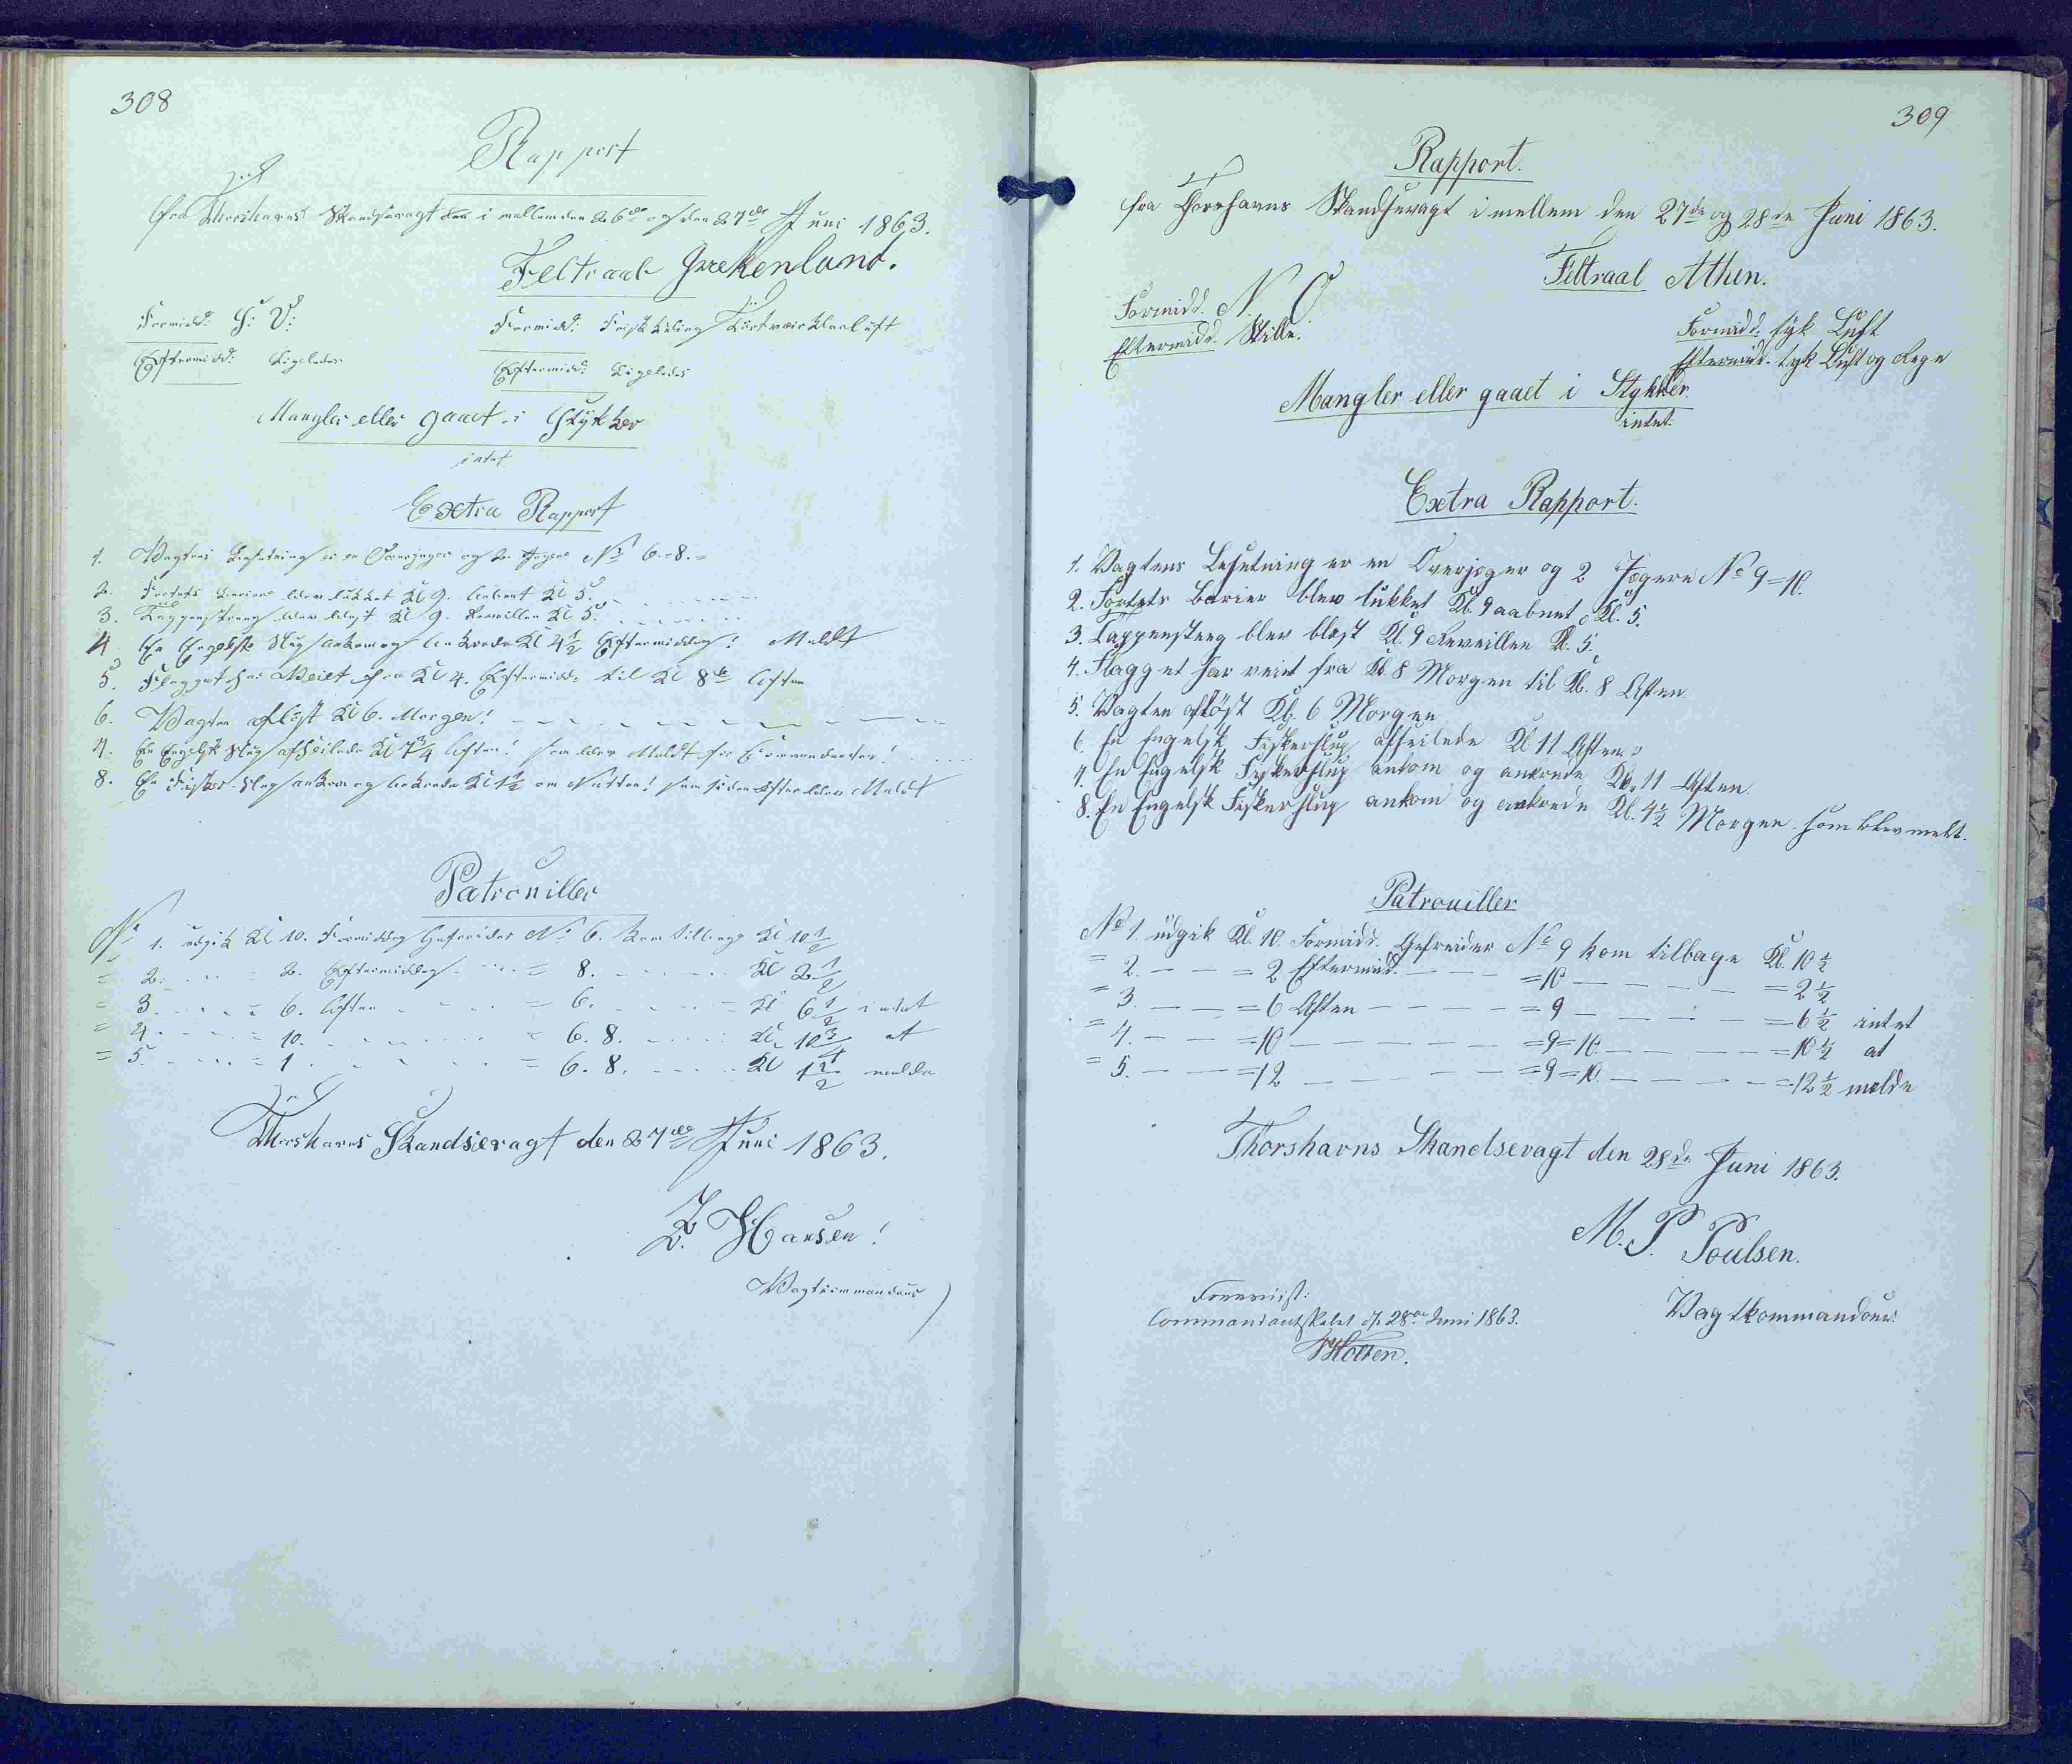 308
Rapport
fra Thorshavns Skandsevagt den i mellem den 26de og den 27de Juni 1863.
Feltraab Grækenland.
Formidd: S: V: Formidd: Frisk Kuling Luft
Eftermidd: Ligeledes Eftermidd: Ligeledes
Mangler eller gaaet i Stykker
intet
Extra Rapport
1. Vagtens Besætning er en Overjæger og 2 Jægere No 6.=8.=
2. Fortets Barier blev lukket Kl 9. aabnet Kl 5.
3. Tappenstreg blev blæst Kl 9. Reveillen Kl 5.
4 En Engelsk Slup ankom og ankrede Kl 4 1/2 Eftermiddag! Meldt
5. Flagget har Veiet fra Kl 4. Eftermidd: til Kl 8te Aften
6. Vagten afløst Kl 6. Morgen!
7. En Engelsk Slup afseilede Kl 7 3/4 Aften! som blev Meldt for Commandanten!
8. En Fisker Slup ankom og ankrede Kl 1 1/2 om Natten! som siden efter blev Meldt
Patrouiller
No 1. udgik Kl 10. Formiddag Gefreider No 6. kom tillbage Kl 10 1/2
= 2. = 2. Eftermiddag = 8. Kl 2 1/2
= 3. = 6. Aften = 6. = Kl 6 1/2 intet
= 4. = 10. = 6. 8. Kl. 10 3/4 at
= 5. = 1 = 6. 8. Kl 1 1/2 melde
Thorshavns Skandsevagt den 27de Juni 1863.
Hansen!
Vagtkommandeur
309
Rapport.
fra Thorshavns Skandsevagt i mellem den 27de og 28de Juni 1863.
Feltraab Athen.
Formidd. N. O Formidd. tyk Luft
Eftermidd. Stille. Eftermidd. tyk Luft og Regn
Mangler eller gaaet i Stykker.
intet.
Extra Rapport.
1. Vagtens Besætning er en Overjæger og 2 Jægere No 9=10.
2. Fortets Barier blev lukket Kl. 9 aabnet Kl. 5.
3. Tappensteeg blev blæst Kl. 9 Reveillen Kl. 5.
4. Flagget har veiet fra Kl. 8 Morgen til Kl. 8 Aften
5. Vagten afløst Kl. 6 Morgen
6. En Engelsk Fiskerslup afseilede Kl 11 Aften
7. En Engelsk Fiskerslup ankom og ankrede Kl. 11 Aften
8. En Engelsk Fiskerslup ankom og ankrede Kl. 4 1/2 Morgen som blev meldt.
Patrouiller
No 1. udgik Kl. 10. Formidd. Gefreider No 9 kom tilbage Kl. 10 1/2
= 2. — — = 2 Eftermidd. — — =10 — — — — =2 1/2
= 3. — — =6 Aften — — — =9 — — — — =6 1/2 intet
= 4. — — =10 — — — — =9=10. — — — — =10 1/2 at
= 5. — — =12 — — — — =9=10. — — — — =12 1/2 melde
Thorshavns Skandsevagt den 28de Juni 1863.
M. P. Poulsen.
Vagtkommandeur.
Foreviist:
Commandantskabet d. 28de Juni 1863.
Holten.